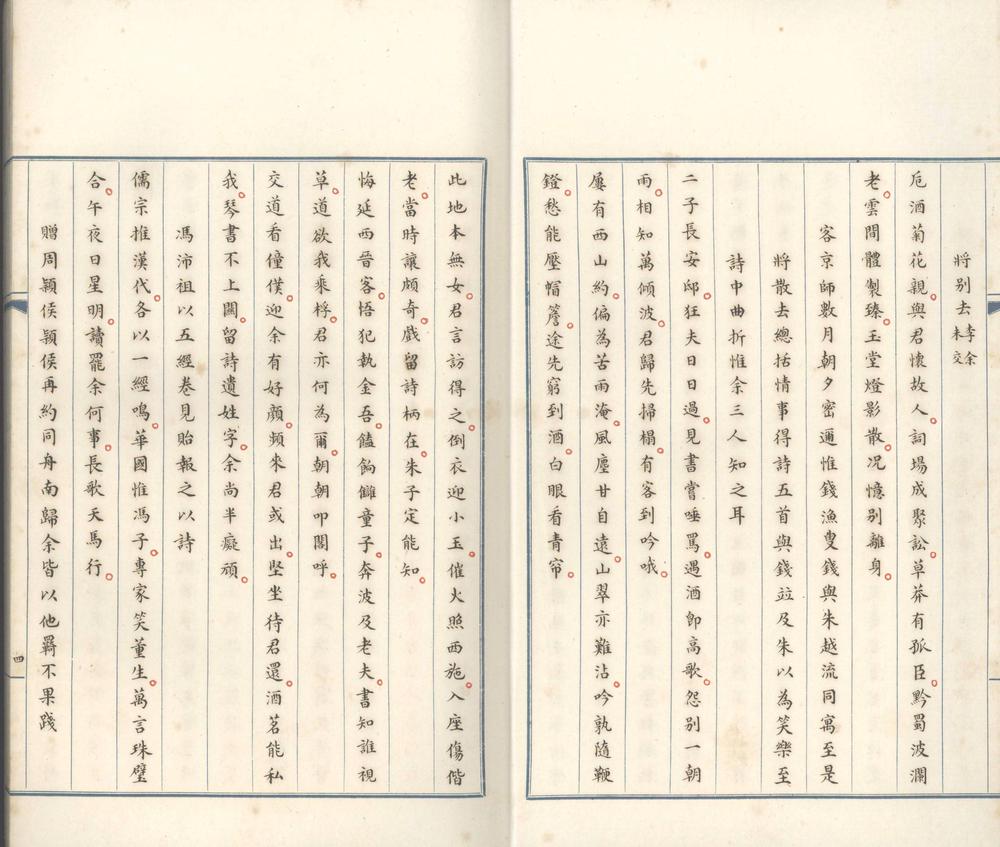 將别去李余未交
卮酒菊花親與君懷故人詞場成聚訟草莽有孤臣黔蜀波瀾
老雲間體製臻玉堂燈影散况憶别離身
客京師數月朝夕密邇惟錢漁叟錢與朱越流同寓至是
將散去總括情事得詩五首與錢竝及朱以為笑樂至
詩中曲折惟余三人知之耳
二子長安邸狂夫日日過見書嘗唾罵遇酒卽高歌怨别一朝
雨相知萬傾波君歸先掃榻有客到吟哦
屢有西山約偏為苦雨淹風塵甘自遠山翠亦難沾吟孰隨鞭
鐙愁能壓帽簷途先窮到酒白眼看青帘
此地本無女君言訪得之倒衣迎小玉催火照西施入座傷偕
老當時讓頗奇戲留詩柄在朱子定能知
悔延西晉客悟犯執金吾饁餉讎童子奔波及老夫書知誰視
草道欲我乘桴君亦何為爾朝朝叩閽呼
交道看僮僕迎余有好顏頻來君或出坚坐待君還酒茗能私
我琴書不上關留詩遺姓字余尚半癡頑
馮沛祖以五經卷見貽報之以詩
儒宗推漢代各以一經鳴華國惟馮子專家笑董生萬言珠璧
合午夜日星明讀罷余何事長歌天馬行
贈周穎侯穎侯再約同舟南歸余皆以他羇不果踐
四